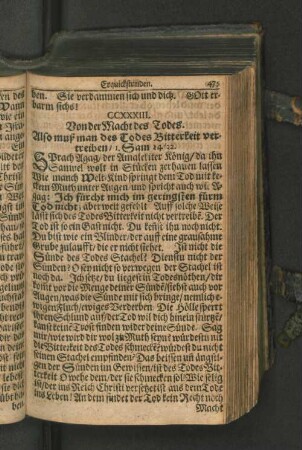 Erquickstunden. 473
ben. Sie verdammen sich und dich. Gott er-
barm sichs!
CCXXXIII.
Von der Macht des Todes.
Also muß man des Todes Bitterkeit ver-
treiben / 1. Sam
SPrach Agag / der Amalekiter König / da ihn
Samuel wolt in Stücken zerhauen lassen
Wie manch Welt-Kind springt dem Tod mit ke-
ckem Muth unter Augen und spricht auch wie A-
gag: Ich fürcht mich im geringsten fürm
Tod nicht: aber weit gefehlt Auf solche Weise
läst sich des Todes Bitterkeit nicht vertreibē. Der
Tod ist so ein Gast nicht. Du kenst ihn noch nicht.
Du bist wie ein Blinder / der auf eine grausahme
Grube zulaufft / die er nicht siehet. Ist nicht die
Sünde des Todes Stachel? Dienstu nicht der
Sünden? O sey nicht so verwegen der Stachel ist
noch da. Ich setze / du liegest in Todesnöthen / dir
komt vor die Menge deiner Sünde / siehst auch vor
Augen / was die Sünde mit sich bringe / nemlich e-
wigen Fluch / ewiges Verderben. Die Hölle sperrt
ihren Schlund auf / der Tod wil dich hineinstürtzē /
kanst keine Trost finden wider deine Sünde. Sag
mir / wie wird dir wol zu Muth seyn? würdestu nicht
die Bitterkeit des Todes schmecken? würdest du nicht
seinen Stachel empfinden? Das beissen uñ ängsti-
gen der Sünden im Gewissen / ist des Todes Bit-
terkeit O wehe dem / der sie schmecken sol! Wie selig
ist / der ins Reich Christi versetzet ist aus dem Tode
ins Leben! An dem findet der Tod kein Recht noch
Macht